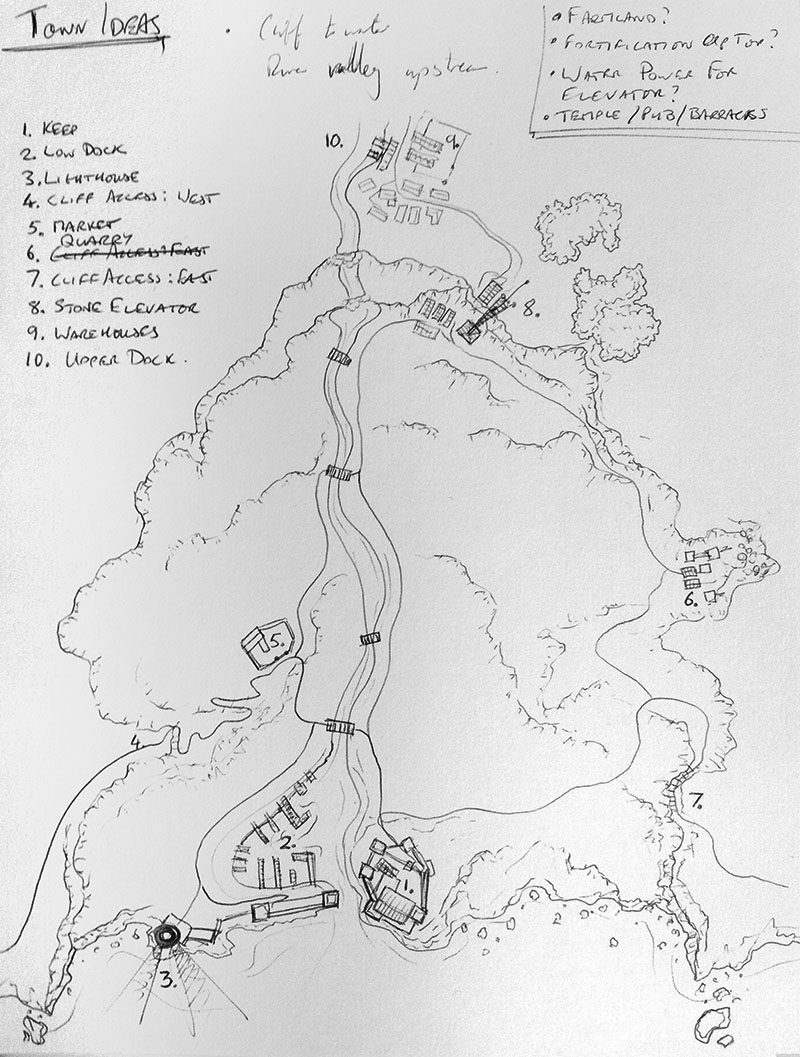 TOWN IDEAS
• Cliff to water
River valley upstream.
• FARMLAND?
• FORTIFICATION UP TOP?
• WATER POWER FOR
ELEVATOR?
• TEMPLE/PUB/BARRACKS
1. KEEP
2. LOW DOCK
3. LIGHTHOUSE
4. CLIFF ACCESS: WEST
5. MARKET
QUARRY
6. CLIFF ACCESS: EAST
7. CLIFF ACCESS: EAST
8. STONE ELEVATOR
9. WAREHOUSES
10. UPPER DOCK.
10.
9.
8.
6.
5.
4
7.
2.
1.
3.